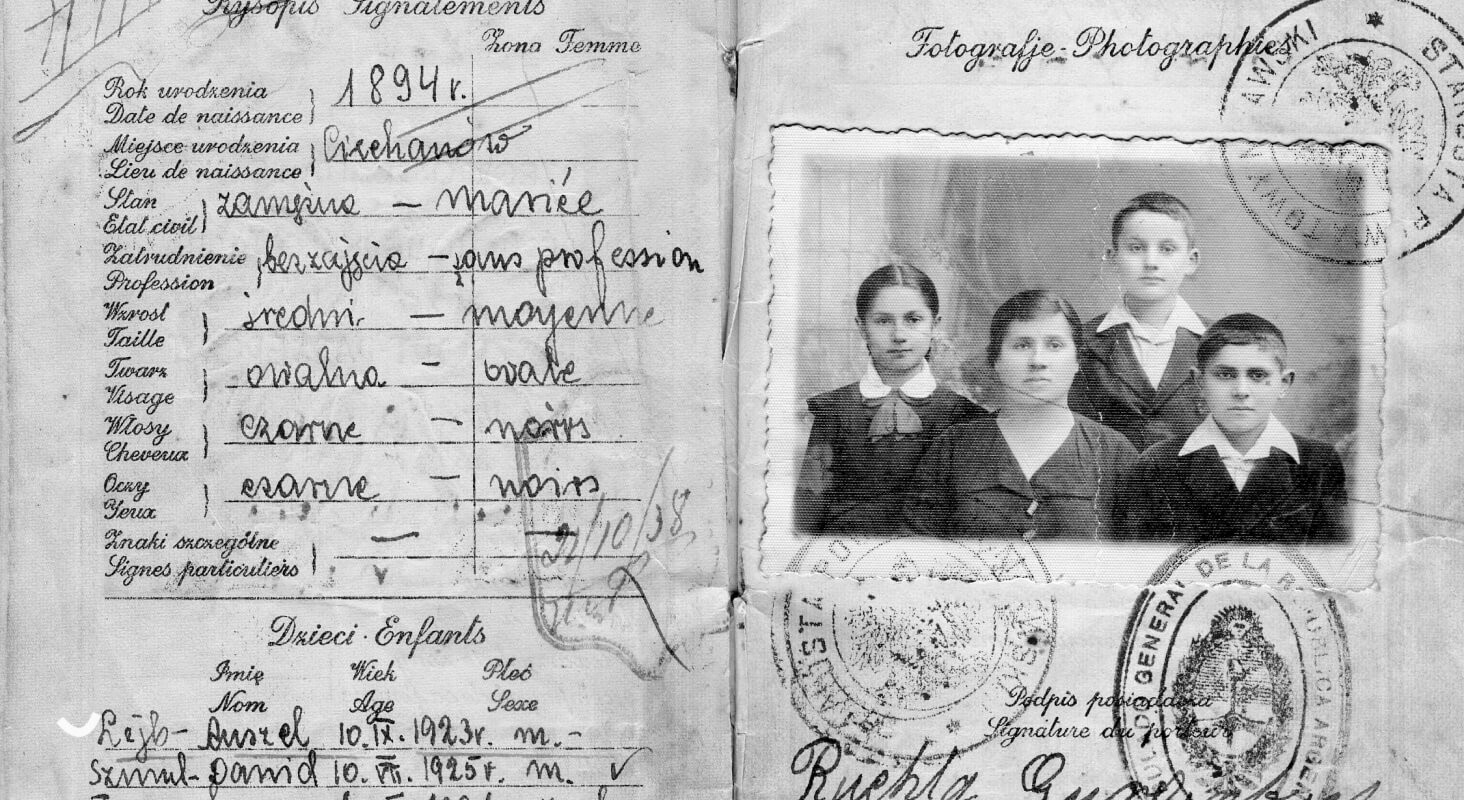 Rysopis Signalements
Żona Femme
Rok urodzenia
Date de naissance
1894 r.
Miejsce urodzenia
Lieu de naissance
Ciechanów
Stan
Etat civil
zamężna — mariée
Zatrudnienie
Profession
bez zajęcia — sans profession
Wzrost
Taille
średni — moyenne
Twarz
Visage
owalna — ovale
Włosy
Cheveux
czarne — noirs
Oczy
Yeux
czarne — noirs
Znaki szczególne
Signes particuliers
— —
/10/38
Dzieci - Enfants
Imię Wiek Płeć
Nom Age Sexe
Lejb- Auszel 10.IX.1923r. m.-
Szmul-Dawid 10.VII.1925r. m.
Fotografje-Photographies
AWSKI ★ STAROSTA POWIATOW
STAROSTA PO WSKI ★
GENERAL DE LA REPUBLICA ARGEN
Podpis posiadacza
Signature du porteur
Ruchla